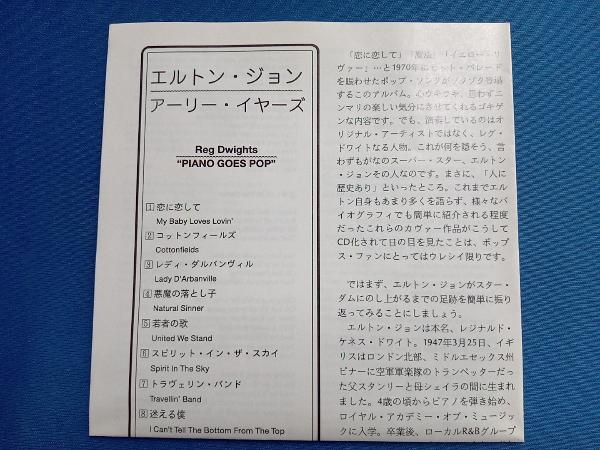 エルトン・ジョン
アーリー・イヤーズ
Reg Dwights
“PIANO GOES POP”
1 恋に恋して
My Baby Loves Lovin'
2 コットンフィールズ
Cottonfields
3 レディ・ダルバンヴィル
Lady D'Arbanville
4 悪魔の落とし子
Natural Sinner
5 若者の歌
United We Stand
6 スピリット・イン・ザ・スカイ
Spirit In The Sky
7 トラヴェリン・バンド
Travellin' Band
8 迷える僕
I Can't Tell The Bottom From The Top
「恋に恋して」「魔法」「イエロー・リ
ヴァー」…と1970年にヒット・パレード
を賑わせたポップ・ソングがゾクゾク登場
するこのアルバム。心ウキウキ、思わずニ
ンマリの楽しい気分にさせてくれるゴキゲ
ンな内容です。でも、演奏しているのはオ
リジナル・アーティストではなく、レグ・
ドワイトなる人物。これが何を隠そう、言
わずもがなのスーパー・スター、エルトン
・ジョンその人なのです。まさに、「人に
歴史あり」といったところ。これまでエル
トン自身もあまり多くを語らず、様々なバ
イオグラフィでも簡単に紹介される程度
だったこれらのカヴァー作品がこうして
CD化されて日の目を見たことは、ポップ
ス・ファンにとってはウレシイ限りです。
ではまず、エルトン・ジョンがスター・
ダムにのし上がるまでの足跡を簡単に振り
返ってみることにしましょう。
エルトン・ジョンは本名、レジナルド・
ケネス・ドワイト。1947年3月25日、イギ
リスはロンドン北部、ミドルエセックス州
ピナーに空軍軍楽隊のトランペッターだっ
た父スタンリーと母シェイラの間に生まれ
ました。4歳の頃からピアノを弾き始め、
ロイヤル・アカデミー・オブ・ミュージッ
クに入学。卒業後、ローカルR&Bグループ